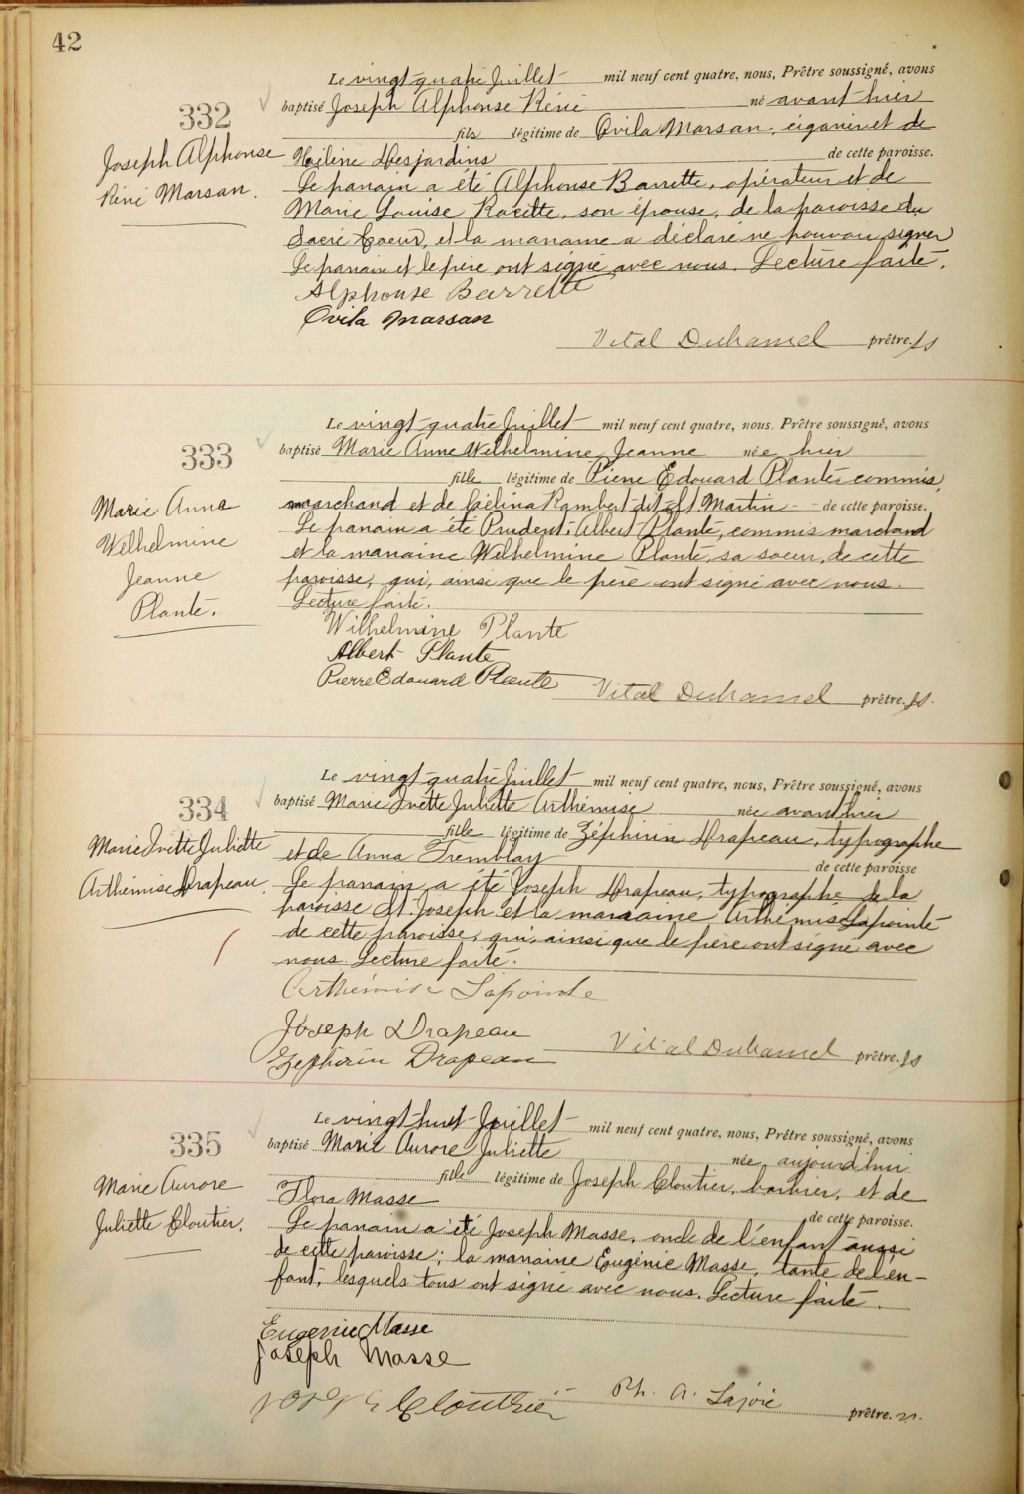 42
Le vingt-quatre Juillet mil neuf cent quatre, nous, Prêtre soussigné, avons
332
baptisé Joseph Alphonse Réné né avant hier
fils légitime de Ovila Marsan, et de
Joseph Alphonse
Réné Marsan.
Hélène Desjardins de cette paroisse.
Le parrain a été Alphonse Barrette, opérateur et de
Marie Louise Racette, son épouse, de la paroisse du
Sacré Coeur, et la marraine a déclaré ne pouvoir signer
Le parrain et le père ont signé avec nous. Lecture faite.
Alphonse Barrette
Ovila Marsan
Vital Duhamel prêtre.
Le vingt-quatre Juillet mil neuf cent quatre, nous. Prêtre soussigné, avons
333
baptisé Marie Anne Welhelmine Jeanne née hier
fille légitime de Pierre Edouard Plante commis
Marie Anna
Welhelmine
Jeanne
Plante.
marchand et de Célina Rambert dit St Martin de cette paroisse.
Le parrain a été Prudent Albert Plante, commis marchand
et la marraine Wilhelmine Plante, sa soeur, de cette
paroisse, qui, ainsi que le père ont signé avec nous.
Lecture faite.
Wilhelmine Plante
Albert Plante
Pierre Edouard Plante
Vital Duhamel prêtre.
Le vingt-quatre Juillet mil neuf cent quatre, nous, Prêtre soussigné, avons
334
baptisé Marie Ivette Juliette Arthémise née avant hier
fille légitime de Zéphirin Drapeau, typographe
Marie Ivette Juliette
Arthémise Drapeau.
et de Anna Tremblay de cette paroisse
Le parrain a été Joseph Drapeau, typographe de la
paroisse St. Joseph et la marraine Arthémise Lapointe
de cette paroisse, qui, ainsi que le père ont signé avec
nous. Lecture faite.
Arthémise Lapointe
Joseph Drapeau
Zephirin Drapeau
Vital Duhamel prêtre.
Le vingt-huit Juillet mil neuf cent quatre, nous, Prêtre soussigné, avons
335
baptisé Marie Aurore Juliette née aujourd'hui
fille légitime de Joseph Cloutier, barbier, et de
Marie Aurore
Juliette Cloutier.
Flora Masse de cette paroisse.
Le parrain a été Joseph Masse, oncle de l'enfant aussi
de cette paroisse; la marraine Eugénie Masse, tante de l'en-
fant, lesquels tous ont signé avec nous. Lecture faite.
Eugenie Masse
Joseph Masse
Cloutier
Ph. A. Lajoie prêtre.